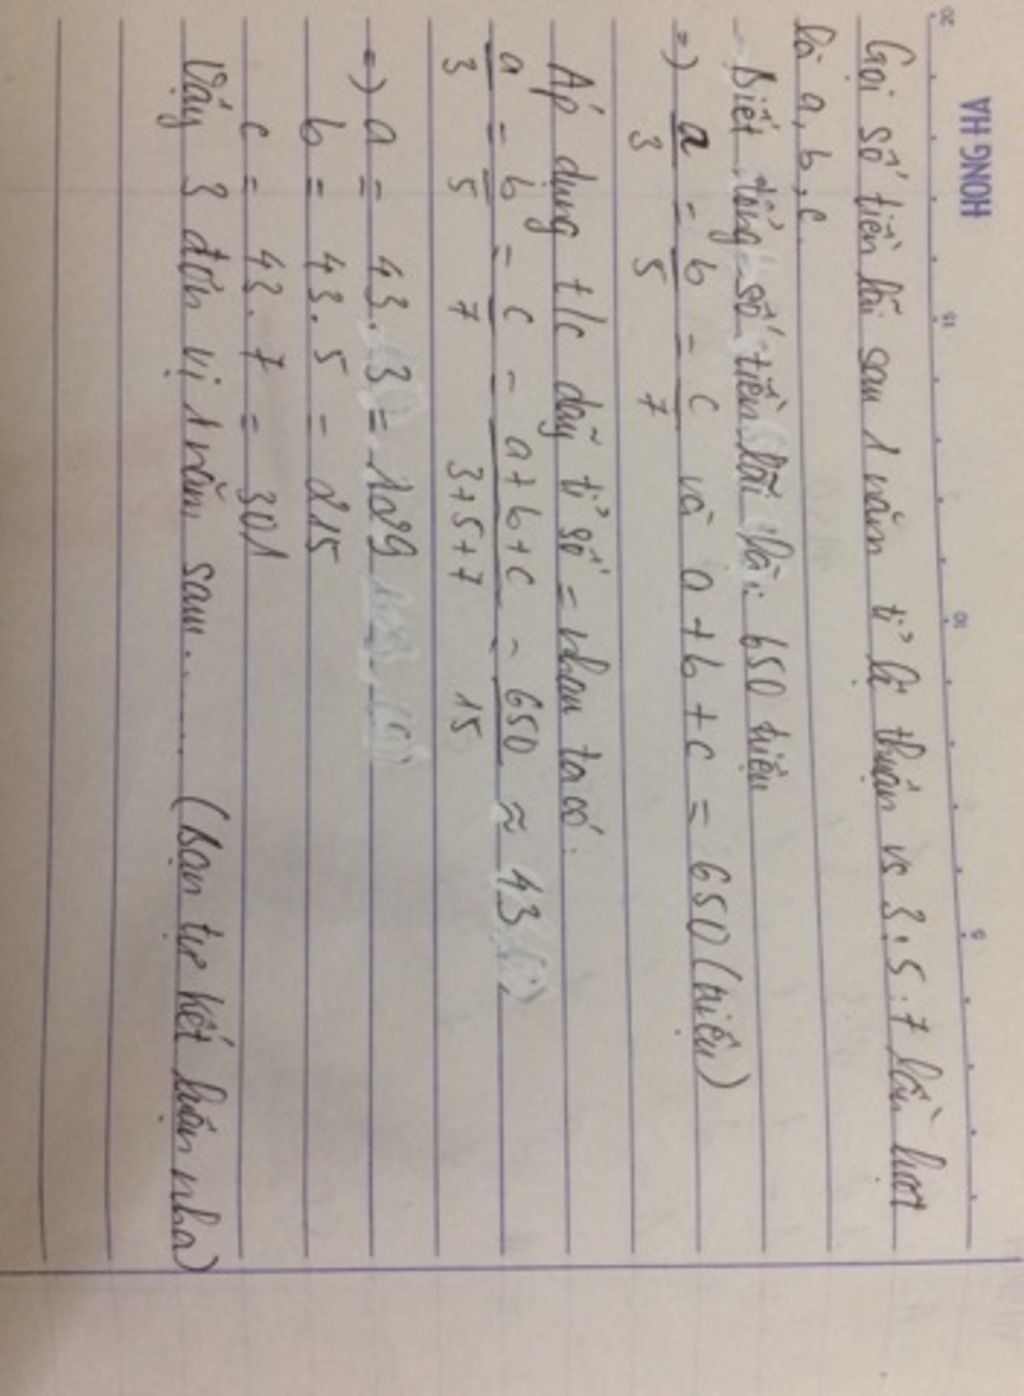 HONG HA
20 15 10 5
Gọi số tiền lãi sau 1 năm tỉ lệ thuận vs 3:5:7 lần lượt
là a, b, c.
- Biết tổng số tiền lãi là: 650 triệu
=) a/3 = b/5 = c/7 và a+b+c = 650 (triệu)
Áp dụng t/c dãy tỉ số = nhau ta có:
a/3 = b/5 = c/7 = a+b+c/3+5+7 = 650/15 ≈ 43
=) a = 43.3 = 129
b = 43.5 = 215
c = 43.7 = 301
Vậy 3 đơn vị 1 năm sau....... (Bạn tự kết luận nha)